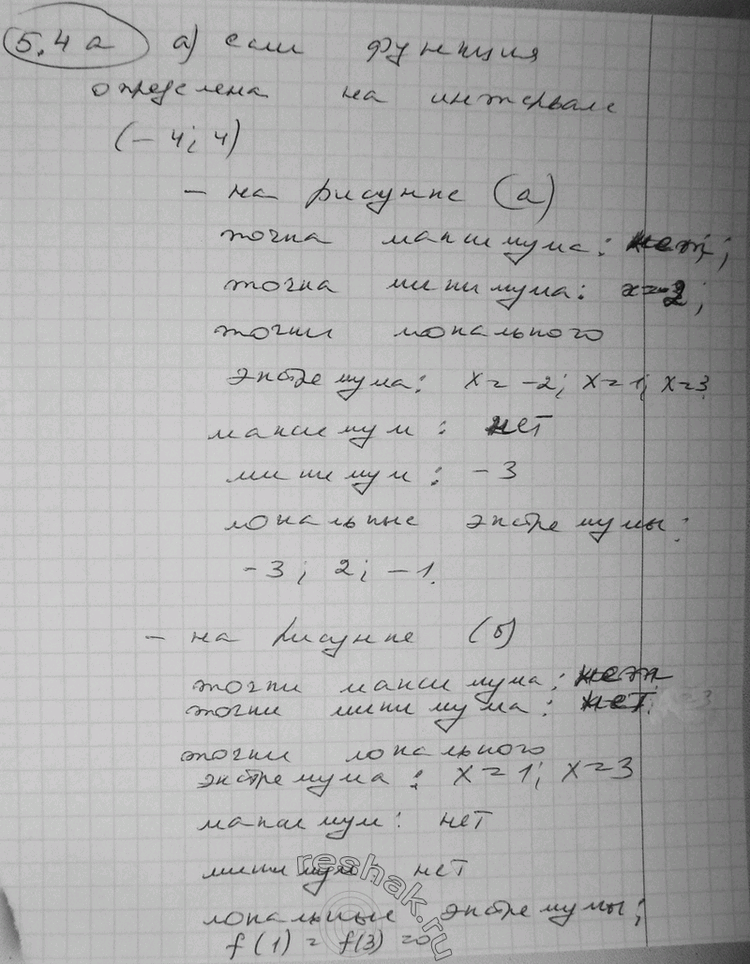 5.4 а а) если функция
определена на интервале
(-4; 4)
- на рисунке (а)
точка максимума: нет;
точка минимума: x=-2;
точки локального
экстремума: x=-2; x=1; x=3
максимум: нет
минимум: -3
локальные экстремумы:
-3; 2; -1.
- на рисунке (б)
точки максимума: нет
точки минимума: нет.
точки локального
экстремума: x=1; x=3
максимум: нет
минимум нет
локальные экстремумы;
f(1) = f(3) =0
reshak.ru